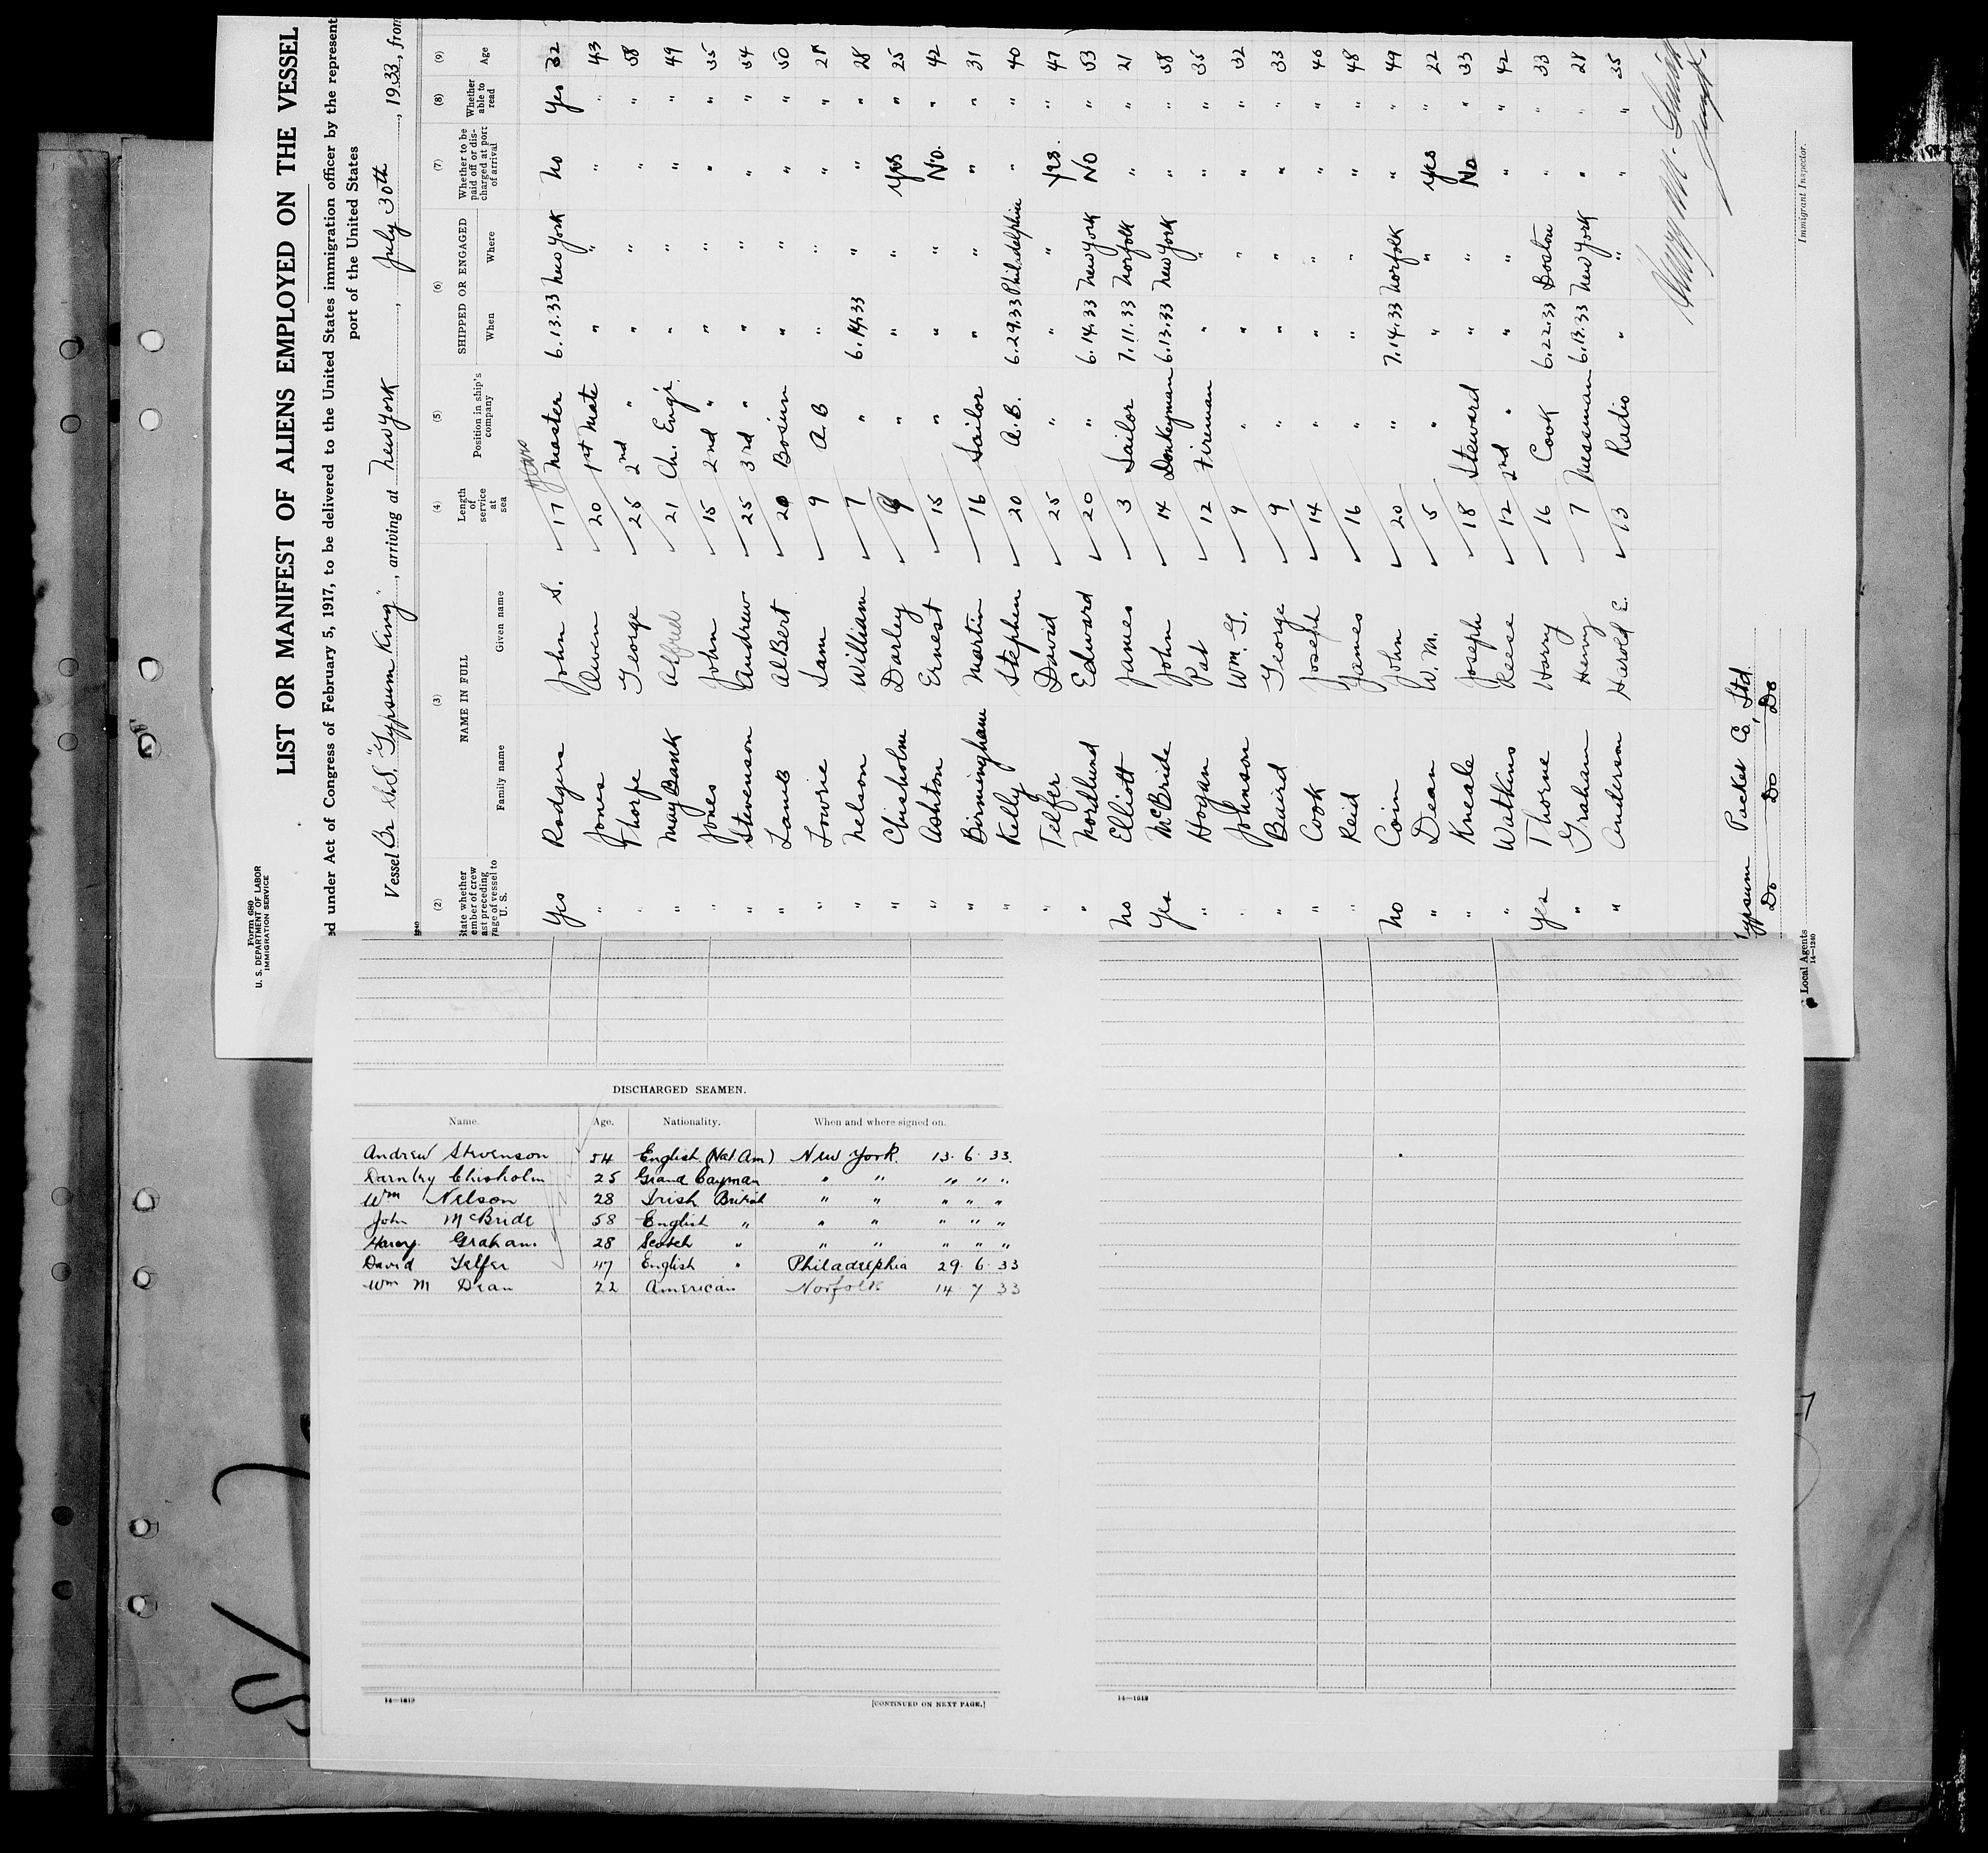 Form 680
U. S. DEPARTMENT OF LABOR
IMMIGRATION SERVICE
LIST OR MANIFEST OF ALIENS EMPLOYED ON THE VESSEL
ed under Act of Congress of February 5, 1917, to be delivered to the United States immigration officer by the represent
port of the United States
Vessel Br S.S. "Gypsum King", arriving at New York, July 30th, 1933, from
(2) (3) (4) (5) (6) (7) (8) (9)
State whether ember of crew ast preceding yage of vessel to U. S. NAME IN FULL Family name Given name Length of service at sea Position in ship's company SHIPPED OR ENGAGED When Where Whether to be paid off or discharged at port of arrival Whether able to read Age
years
Yes Rodgers John S. 17 Master 6.13.33 New York No Yes 32
" Jones Owen 20 1st Mate " " " " 43
" Thorpe George 25 2nd " " " " " 58
" MayBank Alfred 21 Ch. Eng'r. " " " " 49
" Jones John 15 2nd " " " " " 35
" Stevenson Andrew 25 3rd " " " " " 54
" Lamb AlBert 20 Bosiun " " " " 50
" Lowrie Sam 9 A.B " " " "
" Nelson William 7 " 6.14.33 " " " 28
" Chisholm Darley " " " Yes " 25
" Ashton Ernest 15 " " " No. " 42
" Birmingham Martin 16 Sailor " " " " 31
" Kelly Stephen 20 A.B. 6.29.33 Philadelphia " " 40
" Telfer David 25 " " " Yes. " 47
" Nordlund Edward 20 " 6.14.33 New York NO " 53
No Elliott James 3 Sailor 7.11.33 Norfolk " " 21
Yes McBride John 14 Donkeyman 6.13.33 New York " " 58
" Hogan Pat 12 Fireman " " " " 35
" Johnson Wm. G. 9 " " " " " 32
" Baird George 9 " " " " " 33
" Cook Joseph 14 " " " " " 46
" Reid James 16 " " " " " 48
No Coin John 20 " 7.14.33 Norfolk " " 49
" Dean W. M. 5 " " " Yes " 22
" Kneale Joseph 18 Steward " " No " 33
" Watkins Reese 12 2nd " " " " " 42
Yes Thorne Harry 16 Cook 6.22.33 Boston " " 33
" Graham Henry 7 Messman 6.13.33 New York " " 28
" Anderson Harold E. 13 Radio " " " " 35
Immigrant Inspector.
Gypsum Packet Co, Ltd
Do Do Do
Local Agents
14—1240
DISCHARGED SEAMEN.
Name. Age. Nationality. When and where signed on.
Andrew Stevenson 54 English (Nat Am) New York. 13. 6. 33.
Darnley Chisholm 25 Grand Cayman " " " " "
Wm Nelson 28 Irish British " " " " "
John McBride 58 English " " " " " "
Harry. Graham. 28 Scotch " " " " " "
David Telfer 47 English " Philadelphia 29. 6. 33
Wm M Dean 22 American Norfolk 14. 7 33
14—1619
[CONTINUED ON NEXT PAGE.]
14—1619